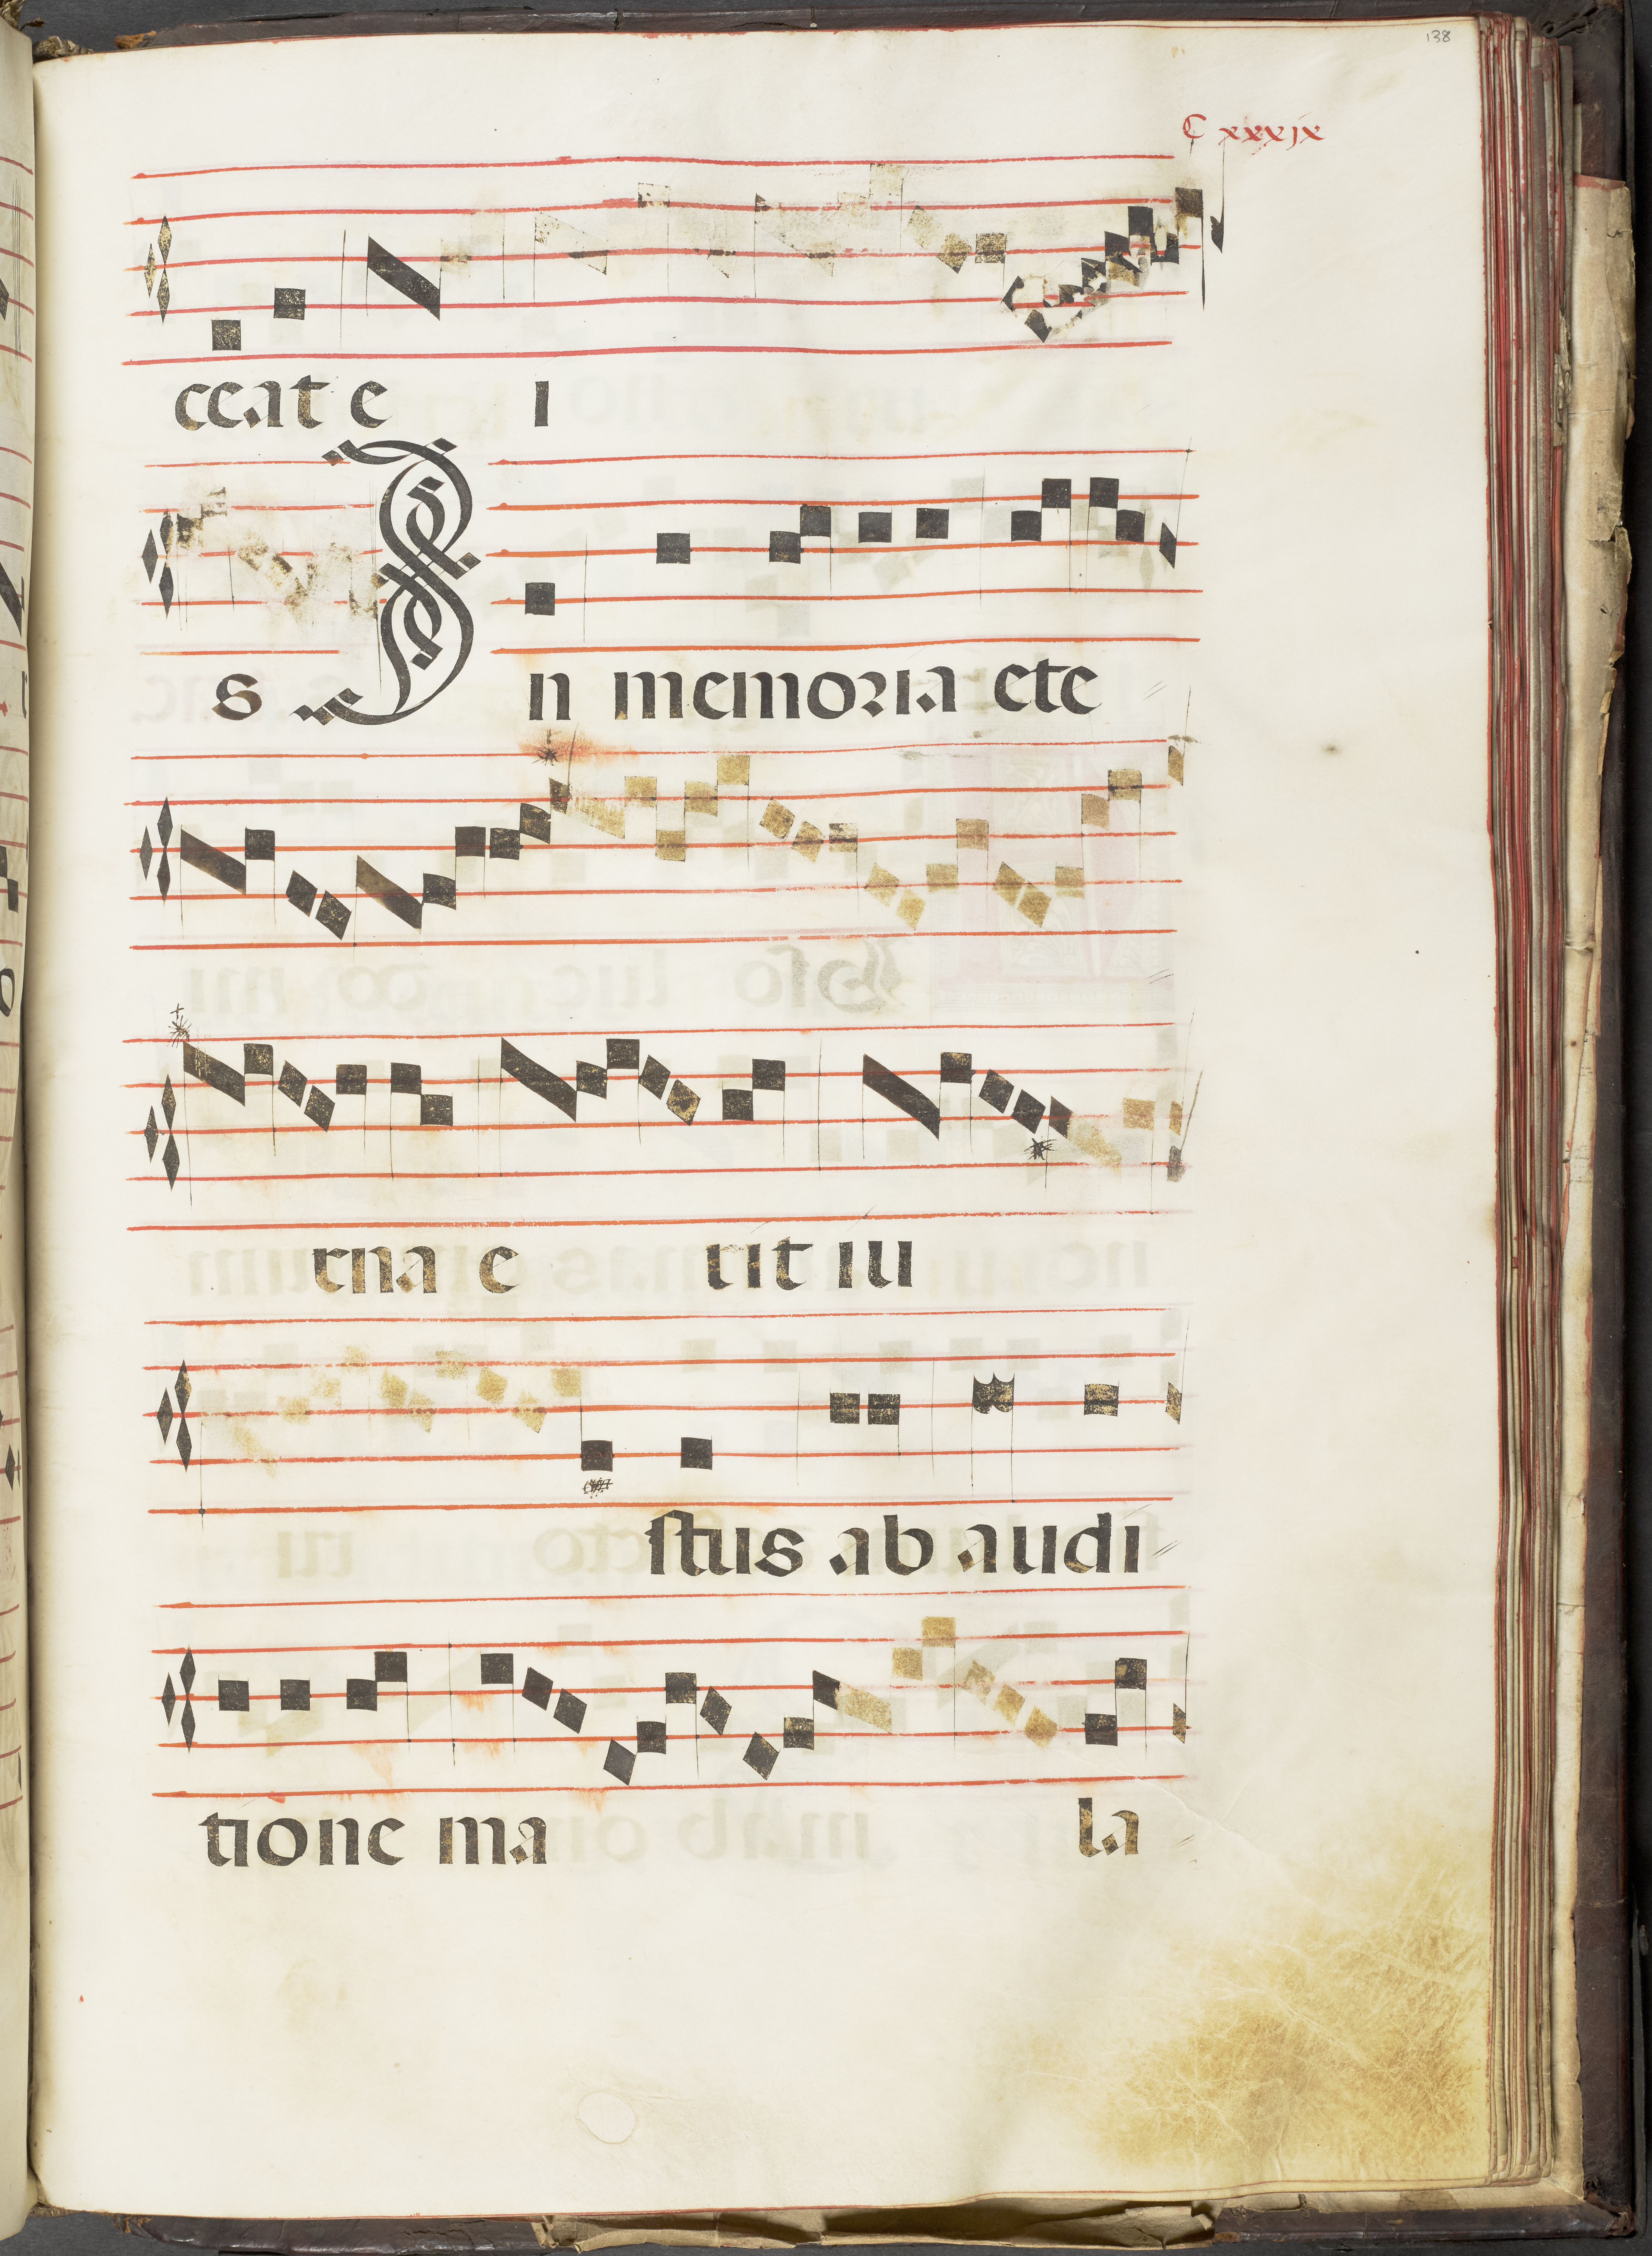 138
C xxxjx
ceat e i
s In memoria ete
rna e rit iu
stus ab audi
tione ma la